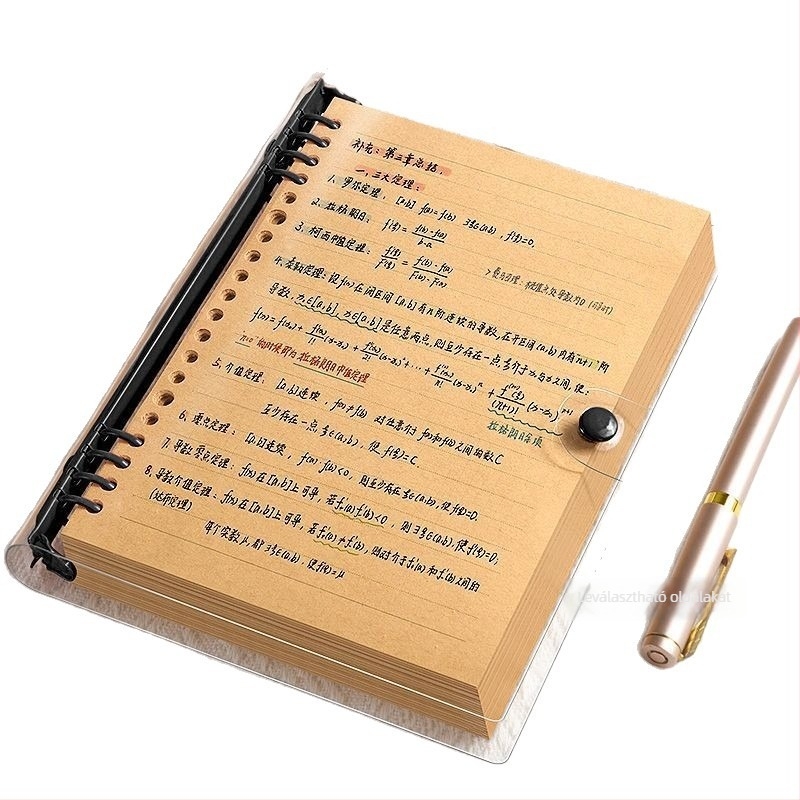 补充：第三章总结.
一，三大定理：
1. 罗尔定理： [a,b] f(a)=f(b) ∃ξ∈(a,b)，f'(ξ)=0.
2. 拉格朗日： f'(ξ)= f(b)-f(a) / b-a
3. 柯西中值定理： f'(ξ) / F'(ξ) = f(b)-f(a) / F(b)-F(a)
4. 泰勒定理：设f(x)在闭区间[a,b]有n阶连续的导数，在开区间(a,b)内有n+1阶
导数，x₀∈[a,b]，x∈[a,b]是任意两点，则至少存在一点ξ介于x₀与x之间，使：
f(x)=f(x₀)+ f'(x₀)/1! (x-x₀) + f''(x₀)/2! (x-x₀)²+…+ f⁽ⁿ⁾(x₀)/n! (x-x₀)ⁿ + f⁽ⁿ⁺¹⁾(ξ)/(n+1)! (x-x₀)ⁿ⁺¹
n=0 的时候即为拉格朗日中值定理
拉格朗日余项
5. 介值定理： [a,b]连续， f(a)≠f(b) 对任意介于f(a)和f(b)之间的数C
至少存在一点ξ∈(a,b)，使 f(ξ)=C.
6. 零点定理： [a,b]连续， f(a)·f(b)<0， 则至少存在ξ∈(a,b)，使f(ξ)=0.
7. 导数零点定理： f(x)在[a,b]上可导，若f'₊(a)f'₋(b)<0， 则∃ξ∈(a,b)，使f'(ξ)=0；
8. 导数介值定理： f(x)在[a,b]上可导，若f'₊(a)≠f'₋(b)，则对介于f'₊(a)和f'₋(b)之间的
(达布定理)
每个实数μ，都∃ξ∈(a,b)，使f'(ξ)=μ
leválasztható oldalakat